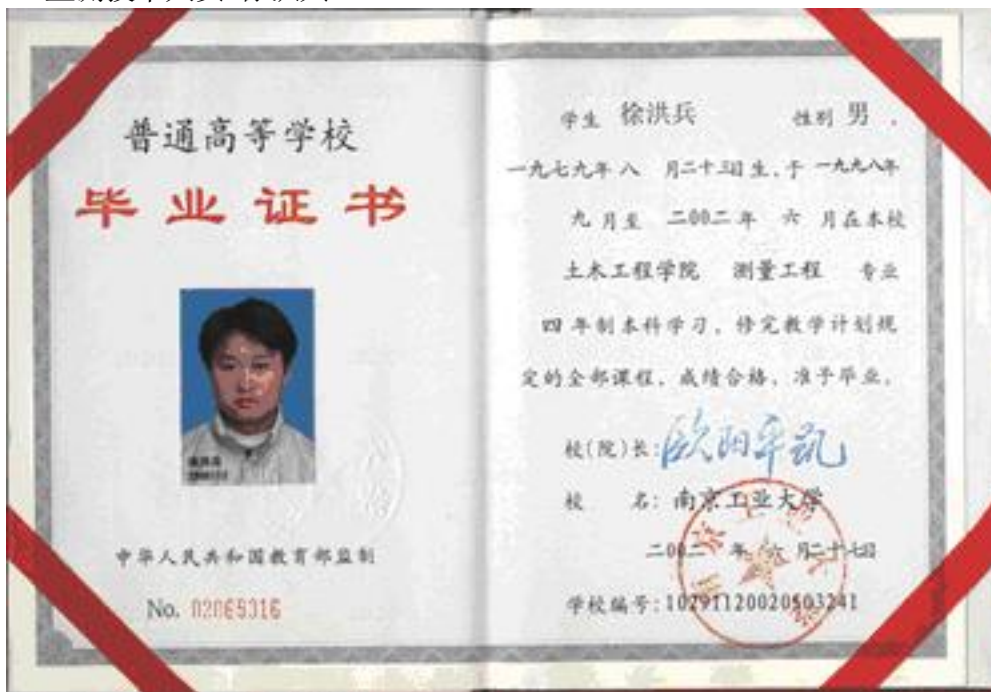 普通高等学校
毕业证书
中华人民共和国教育部监制
No. 02065316
学生 徐洪兵 性别 男 ,
一九七九年 八 月二十三日生, 于 一九九八年
九 月至 二00二 年 六 月在本校
土木工程学院 测量工程 专业
四 年制本科学习, 修完教学计划规
定的全部课程, 成绩合格, 准予毕业。
校(院)长: 欧阳平凯
校 名: 南京工业大学
二00二 年 六 月二十七日
学校编号: 10291120020503241